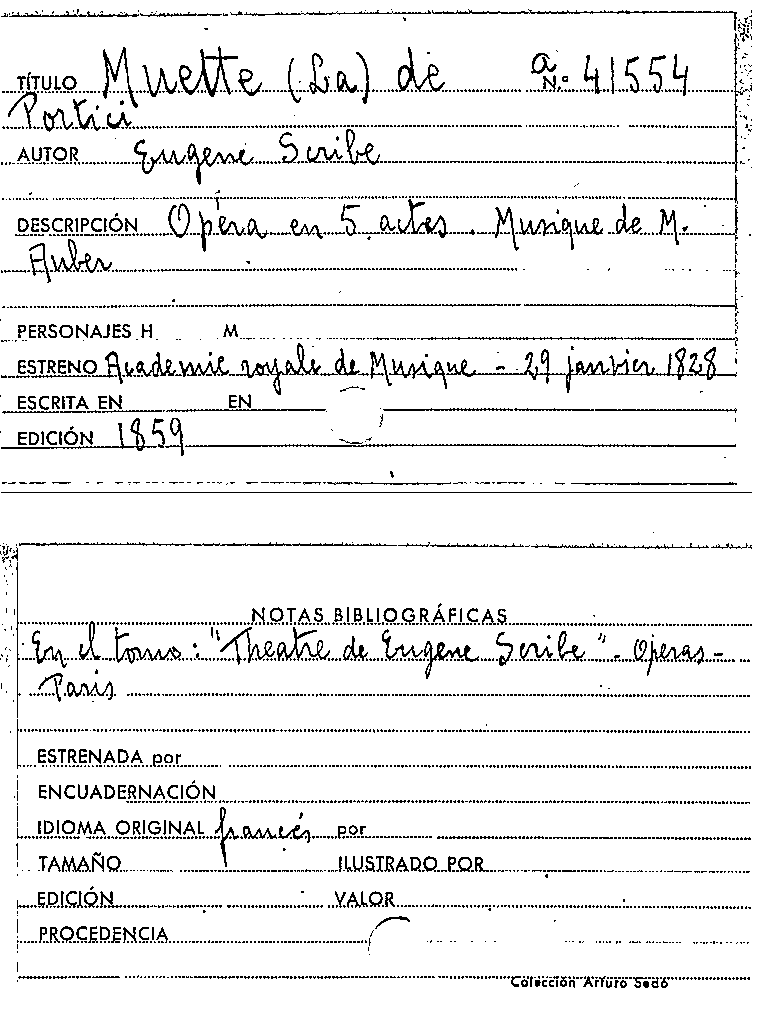 TÍTULO Muette (La) de a N.º 41554
Portici
AUTOR Eugene Scribe
DESCRIPCIÓN Opéra en 5 actes. Musique de M.
Auber
PERSONAJES H M
ESTRENO Academie royale de Musique - 29 janvier 1828
ESCRITA EN EN
EDICIÓN 1859
NOTAS BIBLIOGRÁFICAS
En el tomo: "Theatre de Eugene Scribe" - Operas -
Paris
ESTRENADA por
ENCUADERNACIÓN
IDIOMA ORIGINAL francés por
TAMAÑO ILUSTRADO POR
EDICIÓN VALOR
PROCEDENCIA
Colección Arturo Sedó